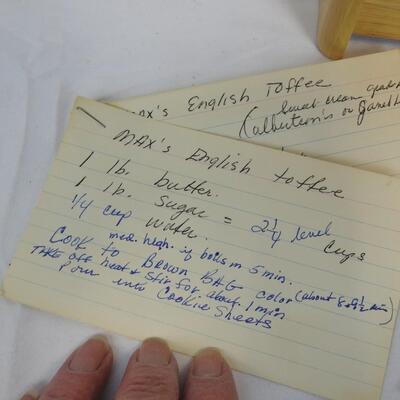 Max's English Toffee
sweet cream
(albertson's or
MAX's English toffee
1 lb. butter.
1 lb. sugar = 2 1/4 level cups
1/4 cup water.
med. high. if boils in 5 min.
COOK to BROWN BAG color (about 8 or 9 1/2 min)
TAKE off heat & stir for about 1 min
pour into Cookie Sheets